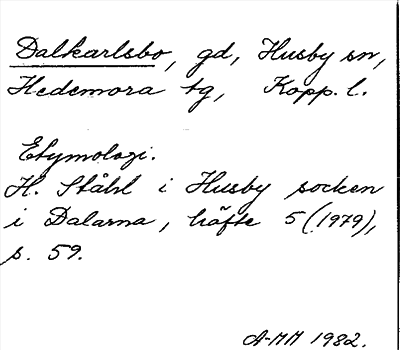 Dalkarlsbo, gd, Husby sn,
Hedemora tg, Kopp. l.
Etymologi.
H. Ståhl i Husby socken
i Dalarna, häfte 5 (1979),
s. 59.
A-MM 1982.